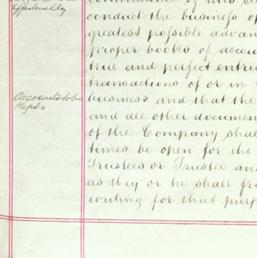 effectually
conduct the business of
greatest possible advan
proper books of accou
true and perfect entri
transactions of or in
business and that the
Accounts to be
kept
and all other documen
of the Company shal
times be open for the
Trustees or Trustee an
as they or he shall fr
writing for that purp